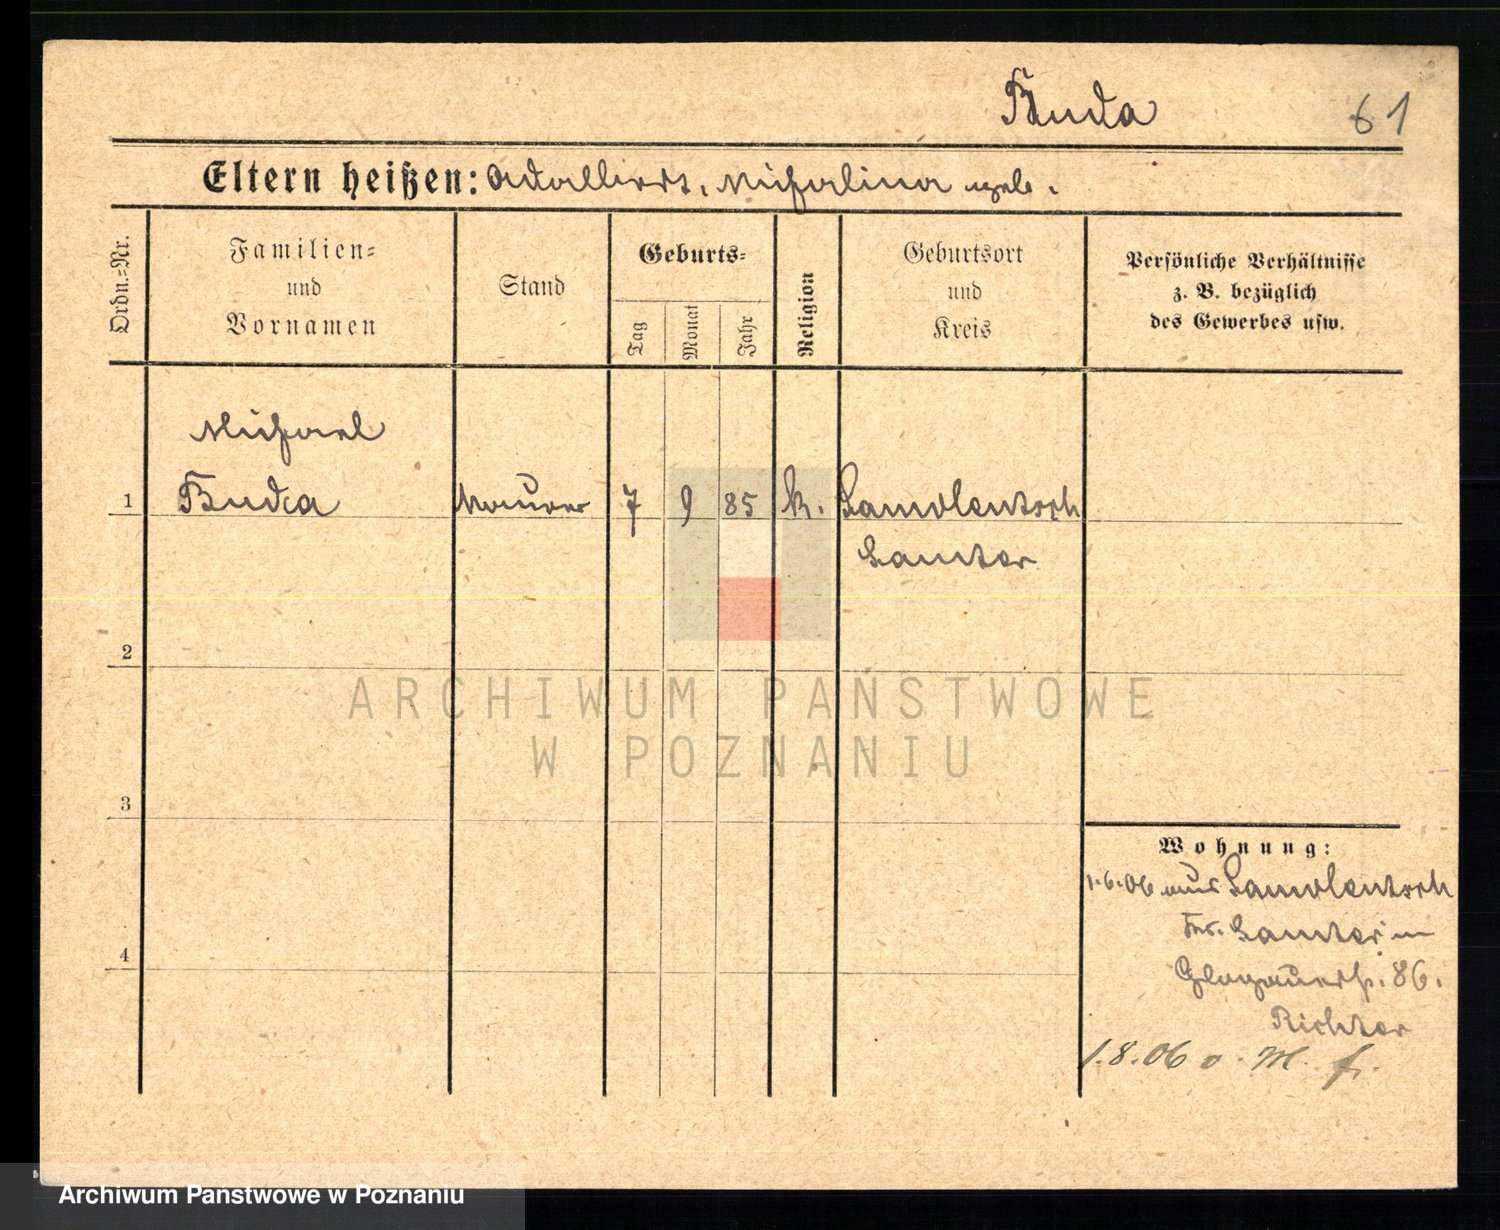 Buda
61
Eltern heißen: Adalbert, Michalina geb.
Ordn.-Nr.
Familien-
und
Vornamen
Stand
Geburts-
Tag
Monat
Jahr
Religion
Geburtsort
und
Kreis
Persönliche Verhältnisse
z. B. bezüglich
des Gewerbes usw.
Michael
1 Buda Maurer 7 9 85 k. Samolentsch
Samter
2
ARCHIWUM PAŃSTWOWE
W POZNANIU
3
4
Wohnung:
1.6.06 aus Samolentsch
Samter in
Glogauerstr. 86.
Richter
1.8.06 o. M. f.
Archiwum Państwowe w Poznaniu